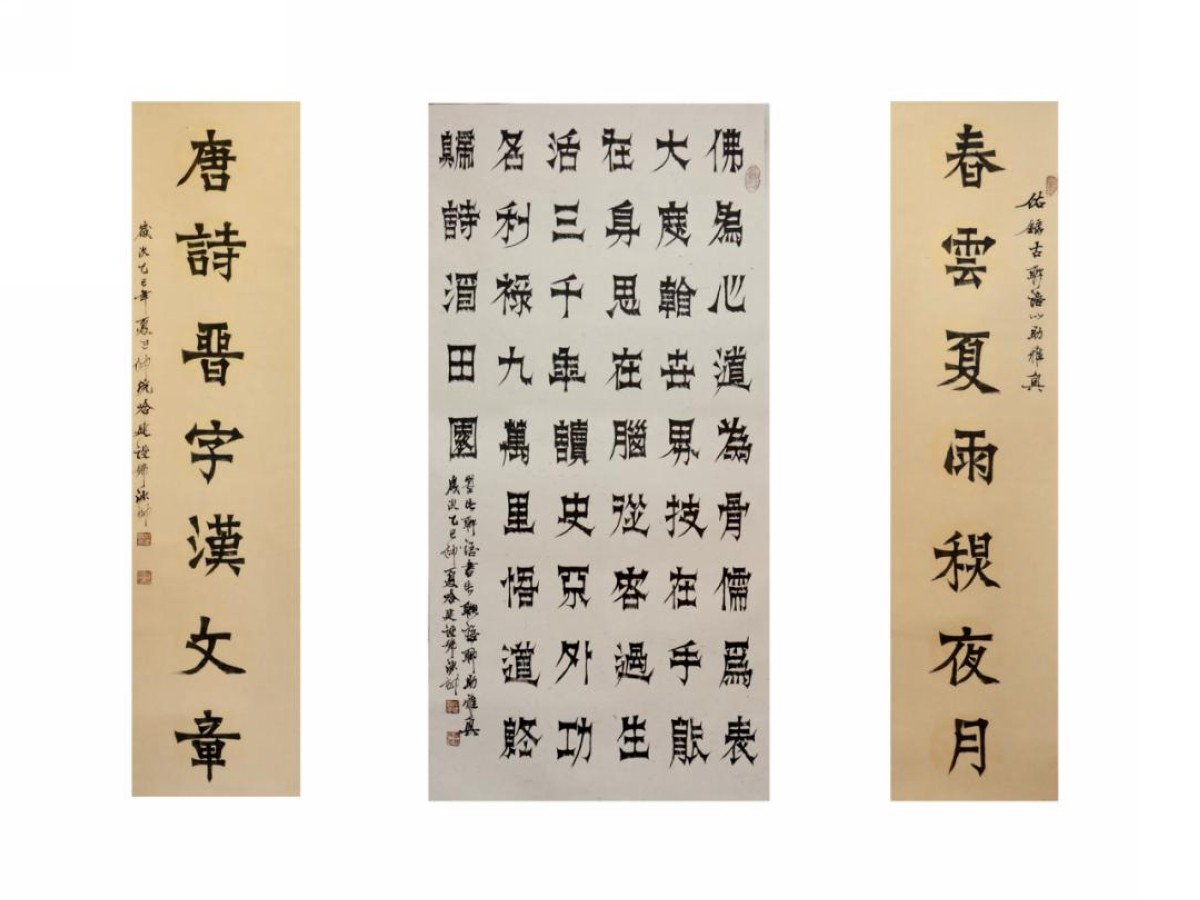 春雲夏雨秋夜月
錄古聯語以助雅興
佛為心道為骨儒爲表
大度看世界技在手能
在身思在腦從容過生
活三千年讀史不外功
名利祿九萬里悟道終
歸詩酒田園
歲次乙巳仲夏
唐詩晉字漢文章
歲次乙巳年夏